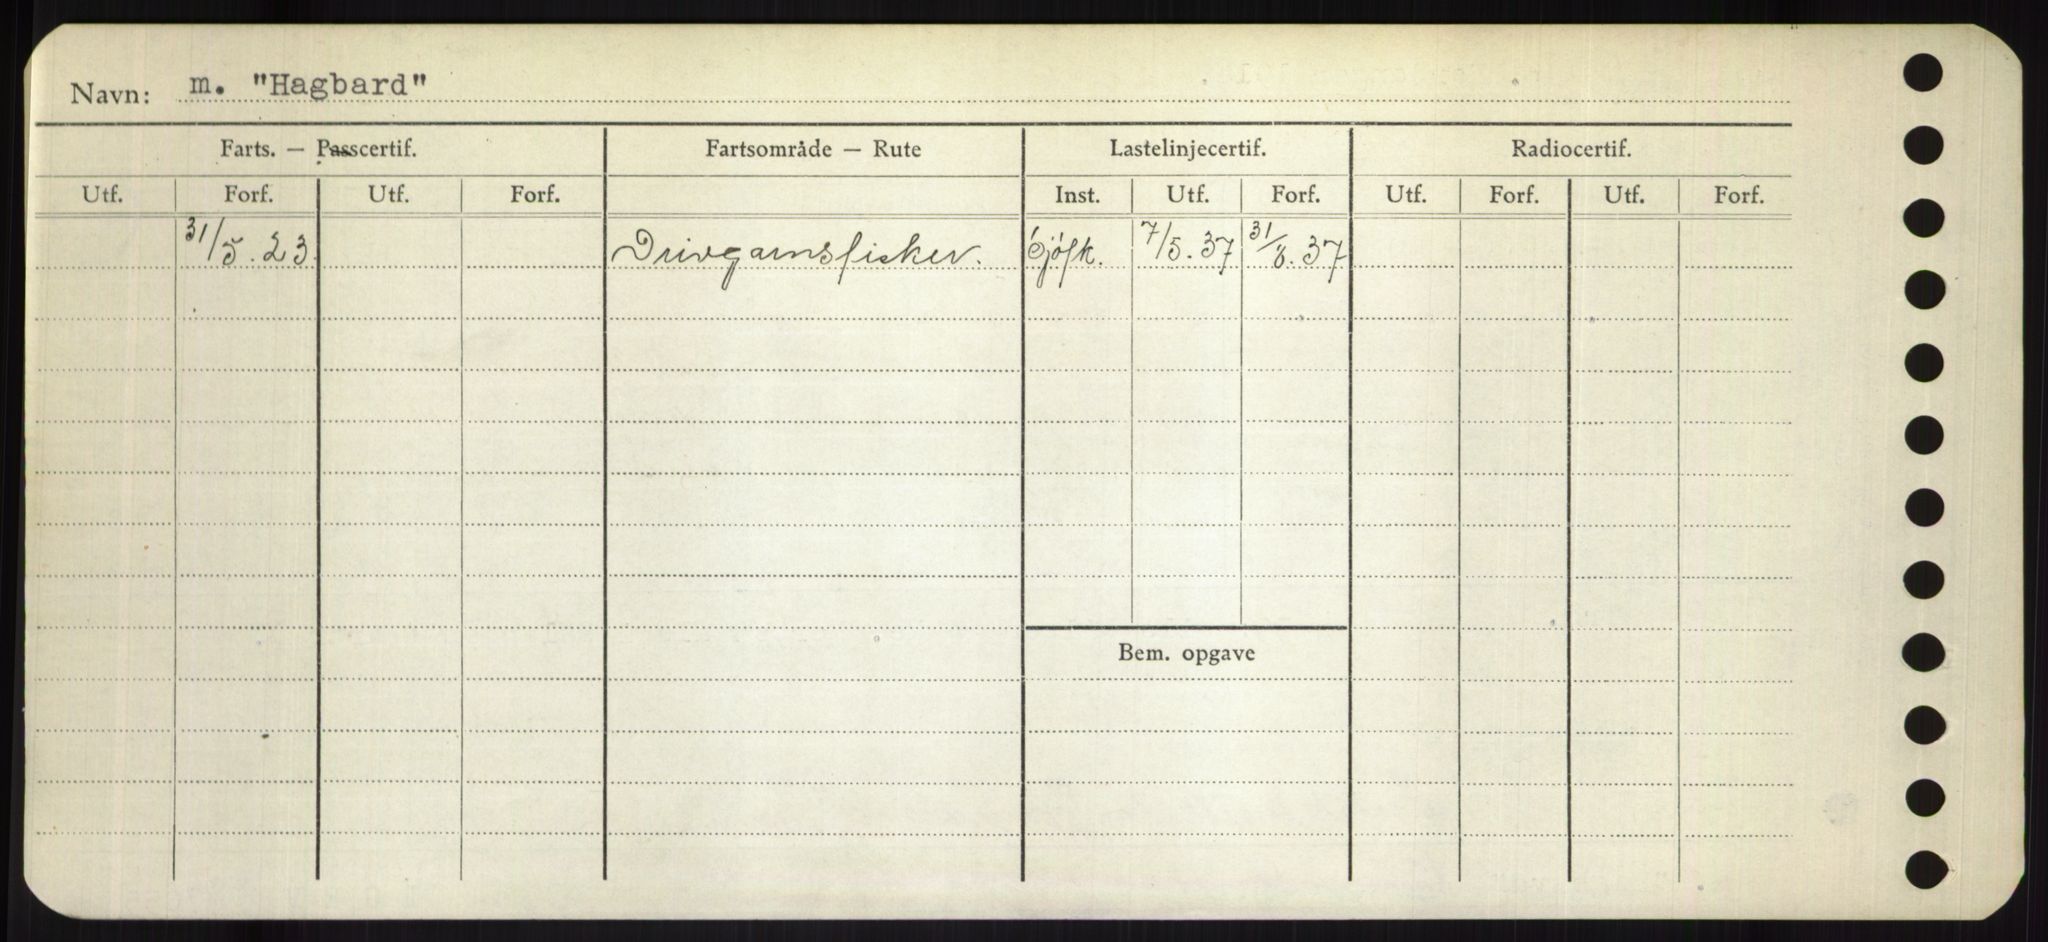 Navn: m. "Hagbard"
Farts. — Passcertif. Fartsområde — Rute Lastelinjecertif. Radiocertif.
Utf. Forf. Utf. Forf. Inst. Utf. Forf. Utf. Forf. Utf. Forf.
31/5.23. Drivgarnsfisker. Sjöfk. 7/5.37 31/8.37
Bem. opgave